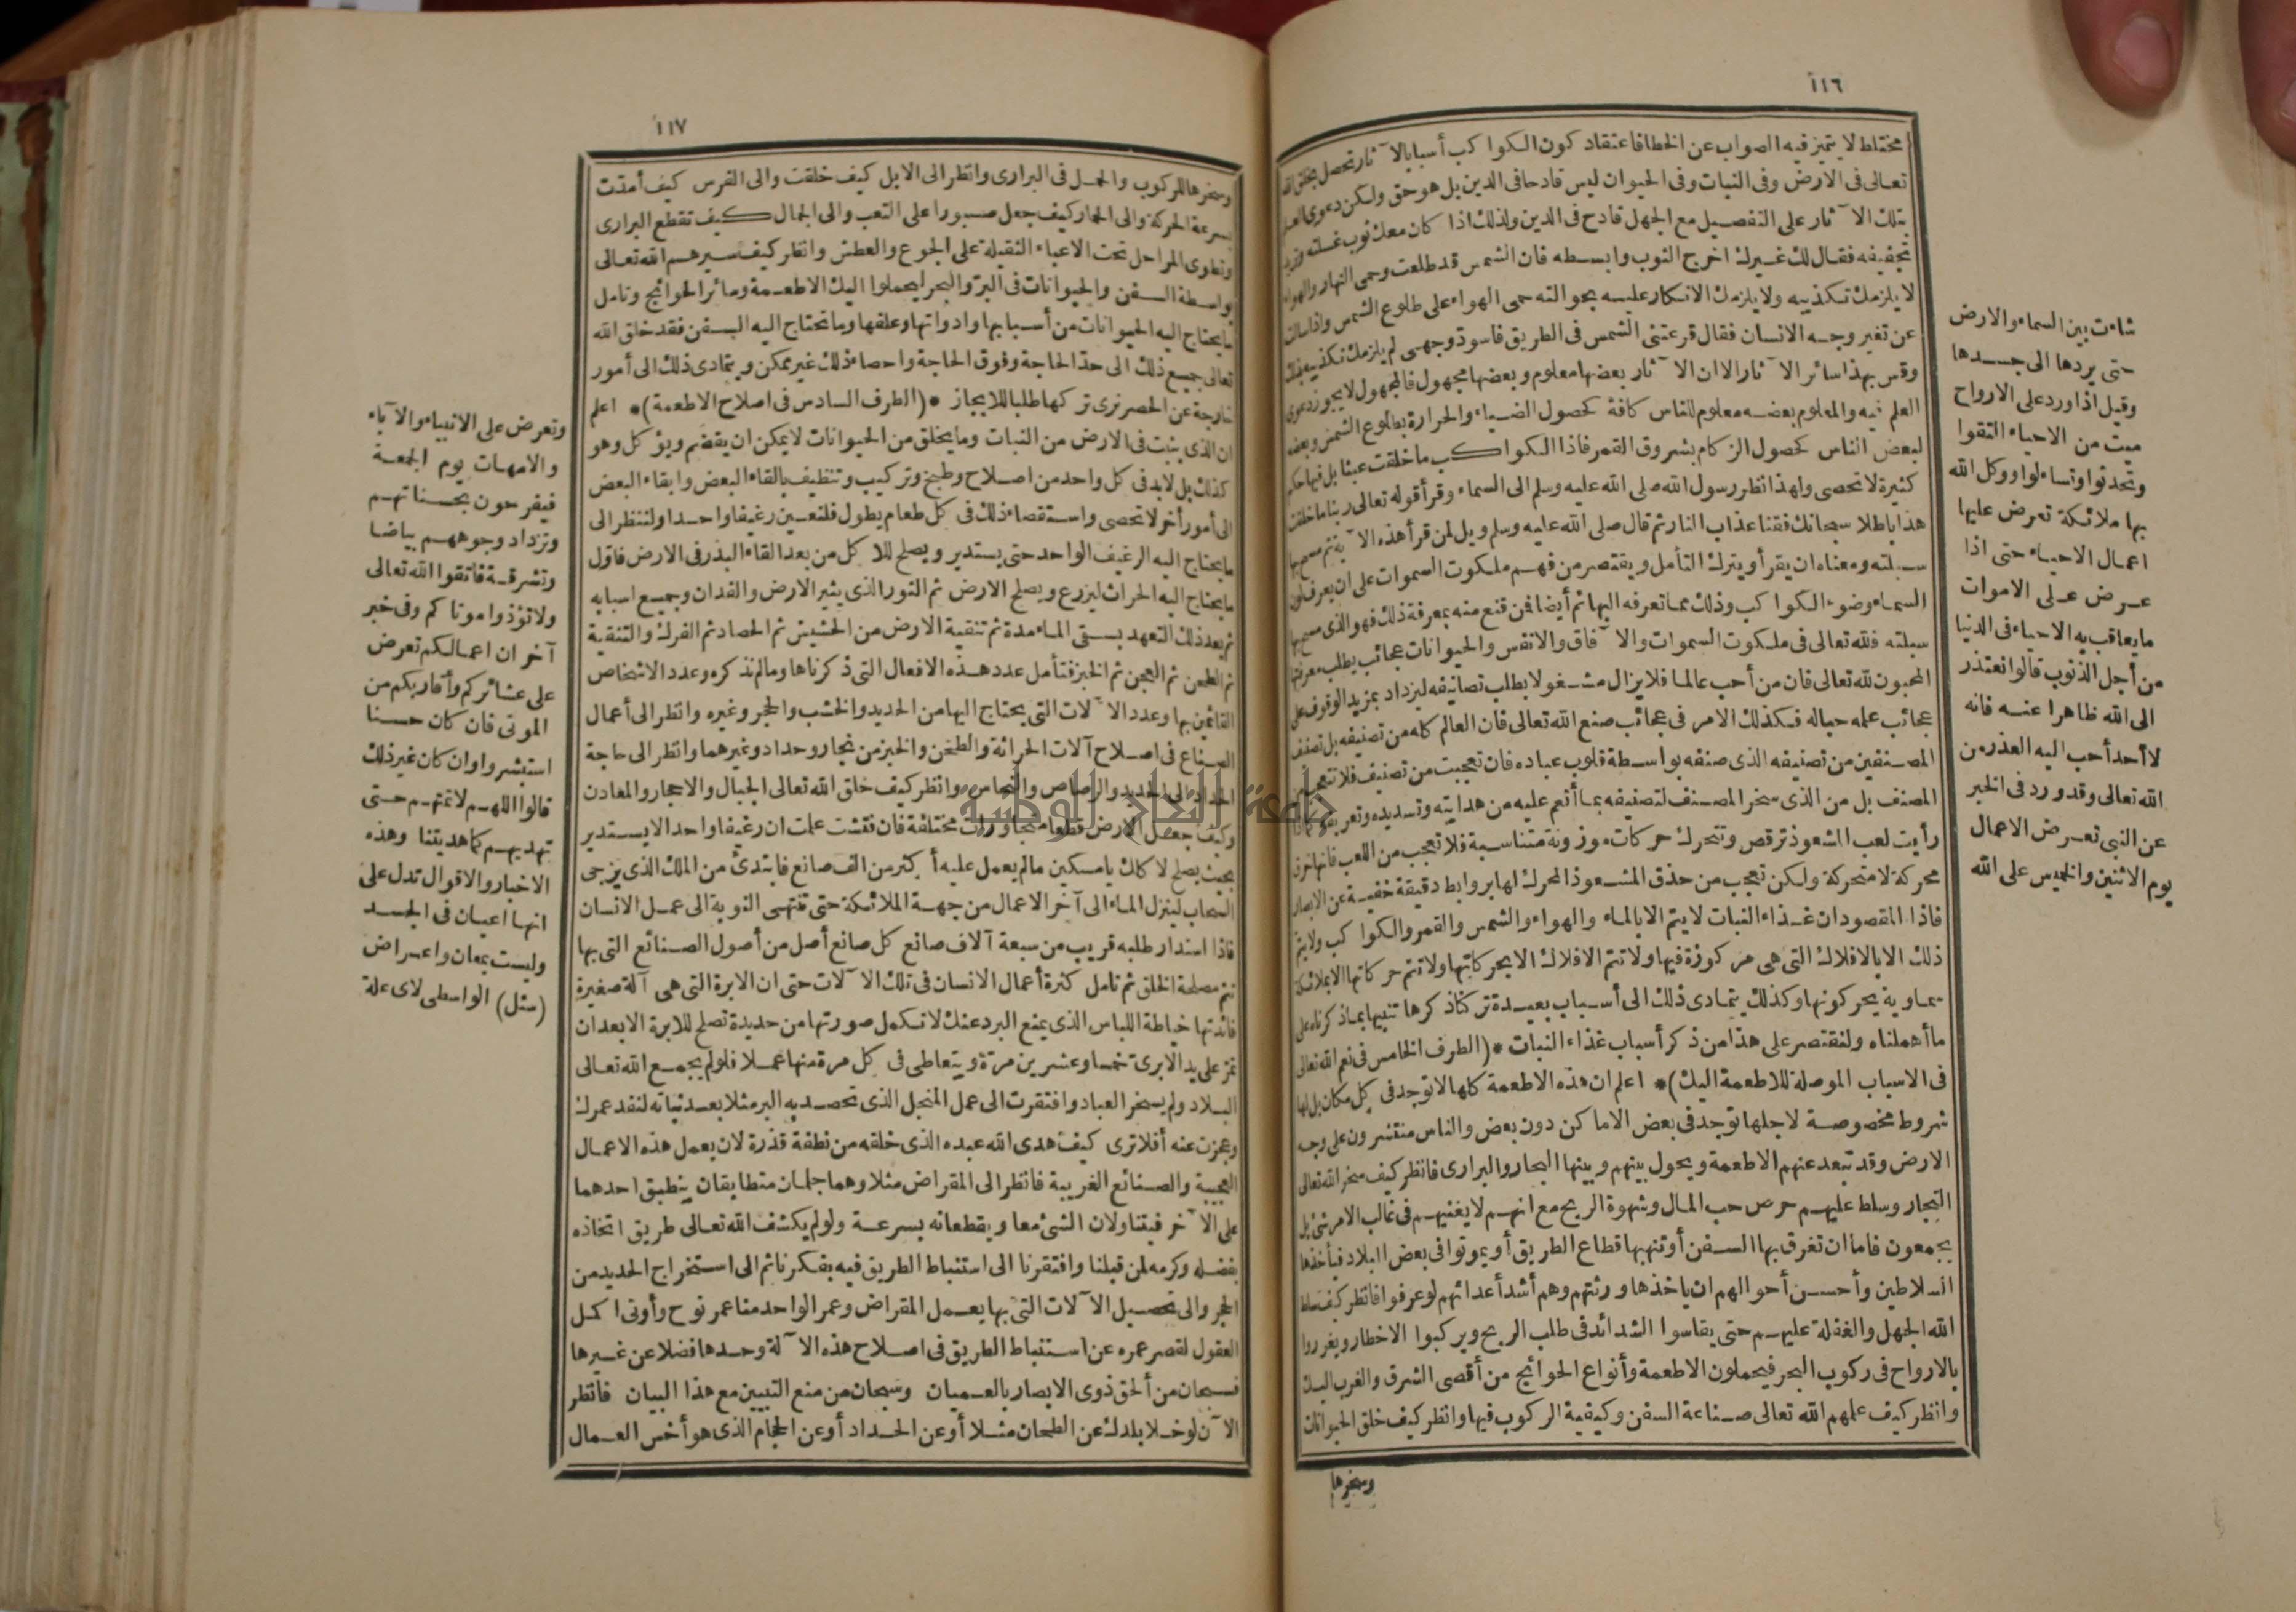 ١١٦
مختلط لا يتميز فيه الصواب عن الخطا فاعتقاد كون الكواكب أسبابا لا ثار تحصل بخلق الله
تعالى فى الارض وفى النبات وفى الحيوان ليس قادحا فى الدين بل هو حق ولكن دعوى العلم
بتلك الا ثار على التفصيل مع الجهل قادح فى الدين ولذلك اذا كان معك ثوب غسلته وتريد
تجفيفه فقال لك غيرك اخرج الثوب وابسطه فان الشمس قد طلعت وحمى النهار والهواء
لا يلزمك تكذيبه ولا يلزمك الانكار عليه بحوالته حمى الهواء على طلوع الشمس واذا سالت
عن تغير وجه الانسان فقال قرعتنى الشمس فى الطريق فاسود وجهى لم يلزمك تكذيبه بذلك
وقس بهذا سائر الا ثار الا ان الا ثار بعضها معلوم وبعضها مجهول فالمجهول لا يجوز دعوى
العلم فيه والمعلوم بعضه معلوم للناس كافة كحصول الضياء والحرارة بطلوع الشمس وبعضه
لبعض الناس كحصول الزكام بشروق القمر فاذا الكواكب ما خلقت عبثا بل فيها حكم
كثيرة لا تحصى ولهذا نظر رسول الله صلى الله عليه وسلم الى السماء وقرأ قوله تعالى ربنا ما خلقت
هذا باطلا سبحانك فقنا عذاب النار ثم قال صلى الله عليه وسلم ويل لمن قرأ هذه الا ية ثم مسح بها
سبلته ومعناه ان يقرأ ويترك التأمل ويقتصر من فهم ملكوت السموات على ان يعرف لون
السماء وضوء الكواكب وذلك مما تعرفه البهائم أيضا فمن قنع منه بمعرفة ذلك فهو الذى مسح بها
سبلته فلله تعالى فى ملكوت السموات والا فاق والانفس والحيوانات عجائب يطلب معرفتها
المحبون لله تعالى فان من أحب عالما فلا يزال مشغولا بطلب تصانيفه ليزداد بمزيد الوقوف على
عجائب علمه حباله فكذلك الامر فى عجائب صنع الله تعالى فان العالم كله من تصنيفه بل تصنيف
المصنفين من تصنيفه الذى صنفه بواسطة قلوب عباده فان تعجبت من تصنيف فلا تتعجب من
المصنف بل من الذى سخر المصنف لتصنيفه بما أنعم عليه من هدايته وتسديده وتعريفه كما اذا
رأيت لعب المشعوذ ترقص وتتحرك حركات موزونة متناسبة فلا تعجب من اللعب فانها خرق
محركة لا متحركة ولكن تعجب من حذق المشعوذ المحرك لها بروابط دقيقة خفية عن الابصار
فاذا المقصود ان غذاء النبات لا يتم الا بالماء والهواء والشمس والقمر والكواكب ولا يتم
ذلك الا بالافلاك التى هى مركوزة فيها ولا تتم الافلاك الا بحركاتها ولا تتم حركاتها الا بملائكة
سماوية يحركونها وكذلك يتمادى ذلك الى أسباب بعيدة تركنا ذكرها تنبيها بما ذكرناه على
ما أهملناه ولنقتصر على هذا من ذكر أسباب غذاء النبات * (الطرف الخامس فى نعم الله تعالى
فى الاسباب الموصلة للاطعمة اليك) * اعلم ان هذه الاطعمة كلها لا توجد فى كل مكان بل لها
شروط مخصوصة لاجلها توجد فى بعض الاماكن دون بعض والناس منتشرون على وجه
الارض وقد تبعد عنهم الاطعمة ويحول بينهم وبينها البحار والبرارى فانظر كيف سخر الله تعالى
التجار وسلط عليهم حرص حب المال وشهوة الربح مع انهم لا يغنيهم فى غالب الامر شئ بل
يجمعون فاما ان تغرق بها السفن أو تنهبها قطاع الطريق أو يموتوا فى بعض البلاد فيأخذها
السلاطين وأحسن أحوالهم ان ياخذها ورثتهم وهم أشد أعدائهم لو عرفوا فانظر كيف سلط
الله الجهل والغفلة عليهم حتى يقاسوا الشدائد فى طلب الربح ويركبوا الاخطار ويغرروا
بالارواح فى ركوب البحر فيحملون الاطعمة وأنواع الحوائج من أقصى الشرق والغرب اليك
وانظر كيف علمهم الله تعالى صناعة السفن وكيفية الركوب فيها وانظر كيف خلق الحيوانات
وسخرها
شاءت بين السماء والارض
حتى يردها الى جسدها
وقيل اذا ورد على الارواح
ميت من الاحياء التقوا
وتحدثوا وتساءلوا ووكل الله
بها ملائكة تعرض عليها
اعمال الاحياء حتى اذا
عرض على الاموات
ما يعاقب به الاحياء فى الدنيا
من أجل الذنوب قالوا نعتذر
الى الله ظاهرا عنه فانه
لا أحد أحب اليه العذر من
الله تعالى وقد ورد فى الخبر
عن النبى تعرض الاعمال
يوم الاثنين والخميس على الله
١١٧
وسخرها للركوب والحمل فى البرارى وانظر الى الابل كيف خلقت والى الفرس كيف أمدت
بسرعة الحركة والى الحمار كيف جعل صبورا على التعب والى الجمال كيف تقطع البرارى
وتطوى المراحل تحت الاعباء الثقيلة على الجوع والعطش وانظر كيف سيرهم الله تعالى
بواسطة السفن والحيوانات فى البر والبحر ليحملوا اليك الاطعمة وسائر الحوائج وتامل
ما يحتاج اليه الحيوانات من أسبابها وادواتها وعلفها وما تحتاج اليه السفن فقد خلق الله
تعالى جميع ذلك الى حد الحاجة وفوق الحاجة واحصاء ذلك غير ممكن ويتمادى ذلك الى أمور
خارجة عن الحصر نرى تركها طلبا للايجاز * (الطرف السادس فى اصلاح الاطعمة) * اعلم
ان الذى ينبت فى الارض من النبات وما يخلق من الحيوانات لا يمكن ان يقضم ويؤكل وهو
كذلك بل لابد فى كل واحد من اصلاح وطبخ وتركيب وتنظيف بالقاء البعض وابقاء البعض
الى أمور أخر لا تحصى واستقصاء ذلك فى كل طعام يطول فلنعين رغيفا واحدا ولننظر الى
ما يحتاج اليه الرغيف الواحد حتى يستدير ويصلح للاكل من بعد القاء البذر فى الارض فاول
ما يحتاج اليه الحراث ليزرع ويصلح الارض ثم الثور الذى يثير الارض والفدان وجميع اسبابه
ثم بعد ذلك التعهد بسقى الماء مدة ثم تنقية الارض من الحشيش ثم الحصاد ثم الفرك والتنقية
ثم الطحن ثم العجن ثم الخبز فتأمل عدد هذه الافعال التى ذكرناها وما لم نذكره وعدد الاشخاص
القائمين بها وعدد الا لات التى يحتاج اليها من الحديد والخشب والحجر وغيره وانظر الى أعمال
الصناع فى اصلاح آلات الحراثة والطحن والخبز من نجار وحداد وغيرهما وانظر الى حاجة
الحداد الى الحديد والرصاص والنحاس وانظر كيف خلق الله تعالى الجبال والاحجار والمعادن
وكيف جعل الارض قطعا متجاورات مختلفة فان فتشت علمت ان رغيفا واحدا لا يستدير
بحيث يصلح لاكلك يا مسكين ما لم يعمل عليه أكثر من الف صانع فابتدئ من الملك الذى يزجى
السحاب لينزل الماء الى آخر الاعمال من جهة الملائكة حتى تنتهى النوبة الى عمل الانسان
فاذا استدار طلبه قريب من سبعة آلاف صانع كل صانع أصل من أصول الصنائع التى بها
تتم مصلحة الخلق ثم تامل كثرة أعمال الانسان فى تلك الا لات حتى ان الابرة التى هى آلة صغيرة
فائدتها خياطة اللباس الذى يمنع البرد عنك لا تكمل صورتها من حديدة تصلح للابرة الا بعد ان
تمر على يد الابرى خمسا وعشرين مرة ويتعاطى فى كل مرة منها عملا فلو لم يجمع الله تعالى
البلاد ولم يسخر العباد وافتقرت الى عمل المنجل الذى تحصد به البر مثلا بعد نباته لنفد عمرك
وعجزت عنه أفلا ترى كيف هدى الله عبده الذى خلقه من نطفة قذرة لان يعمل هذه الاعمال
العجيبة والصنائع الغريبة فانظر الى المقراض مثلا وهما جلمان متطابقان ينطبق احدهما
على الا خر فيتناولان الشئ معا ويقطعانه بسرعة ولو لم يكشف الله تعالى طريق اتخاذه
بفضله وكرمه لمن قبلنا وافتقرنا الى استنباط الطريق فيه بفكرنا ثم الى استخراج الحديد من
الحجر والى تحصيل الا لات التى بها يعمل المقراض وعمر الواحد منا عمر نوح وأوتى اكمل
العقول لقصر عمره عن استنباط الطريق فى اصلاح هذه الا لة وحدها فضلا عن غيرها
فسبحان من ألحق ذوى الابصار بالعميان وسبحان من منع التبيين مع هذا البيان فانظر
الا ن لو خلا بلدك عن الطحان مثلا أو عن الحداد أو عن الحجام الذى هو أخس العمال
وتعرض على الانبياء والا باء
والامهات يوم الجمعة
فيفرحون بحسناتهم
وتزداد وجوههم بياضا
وتشرقة فاتقوا الله تعالى
ولا تؤذوا موتاكم وفى خبر
آخر ان اعمالكم تعرض
على عشائركم وأقاربكم من
الموتى فان كان حسنا
استبشروا وان كان غير ذلك
قالوا اللهم لا تمتهم حتى
تهديهم كما هديتنا وهذه
الاخبار والاقوال تدل على
انها اعيان فى الجسد
وليست بمعان واعراض
(سئل) الواسطى لاى علة
جامعة النجاح الوطنية